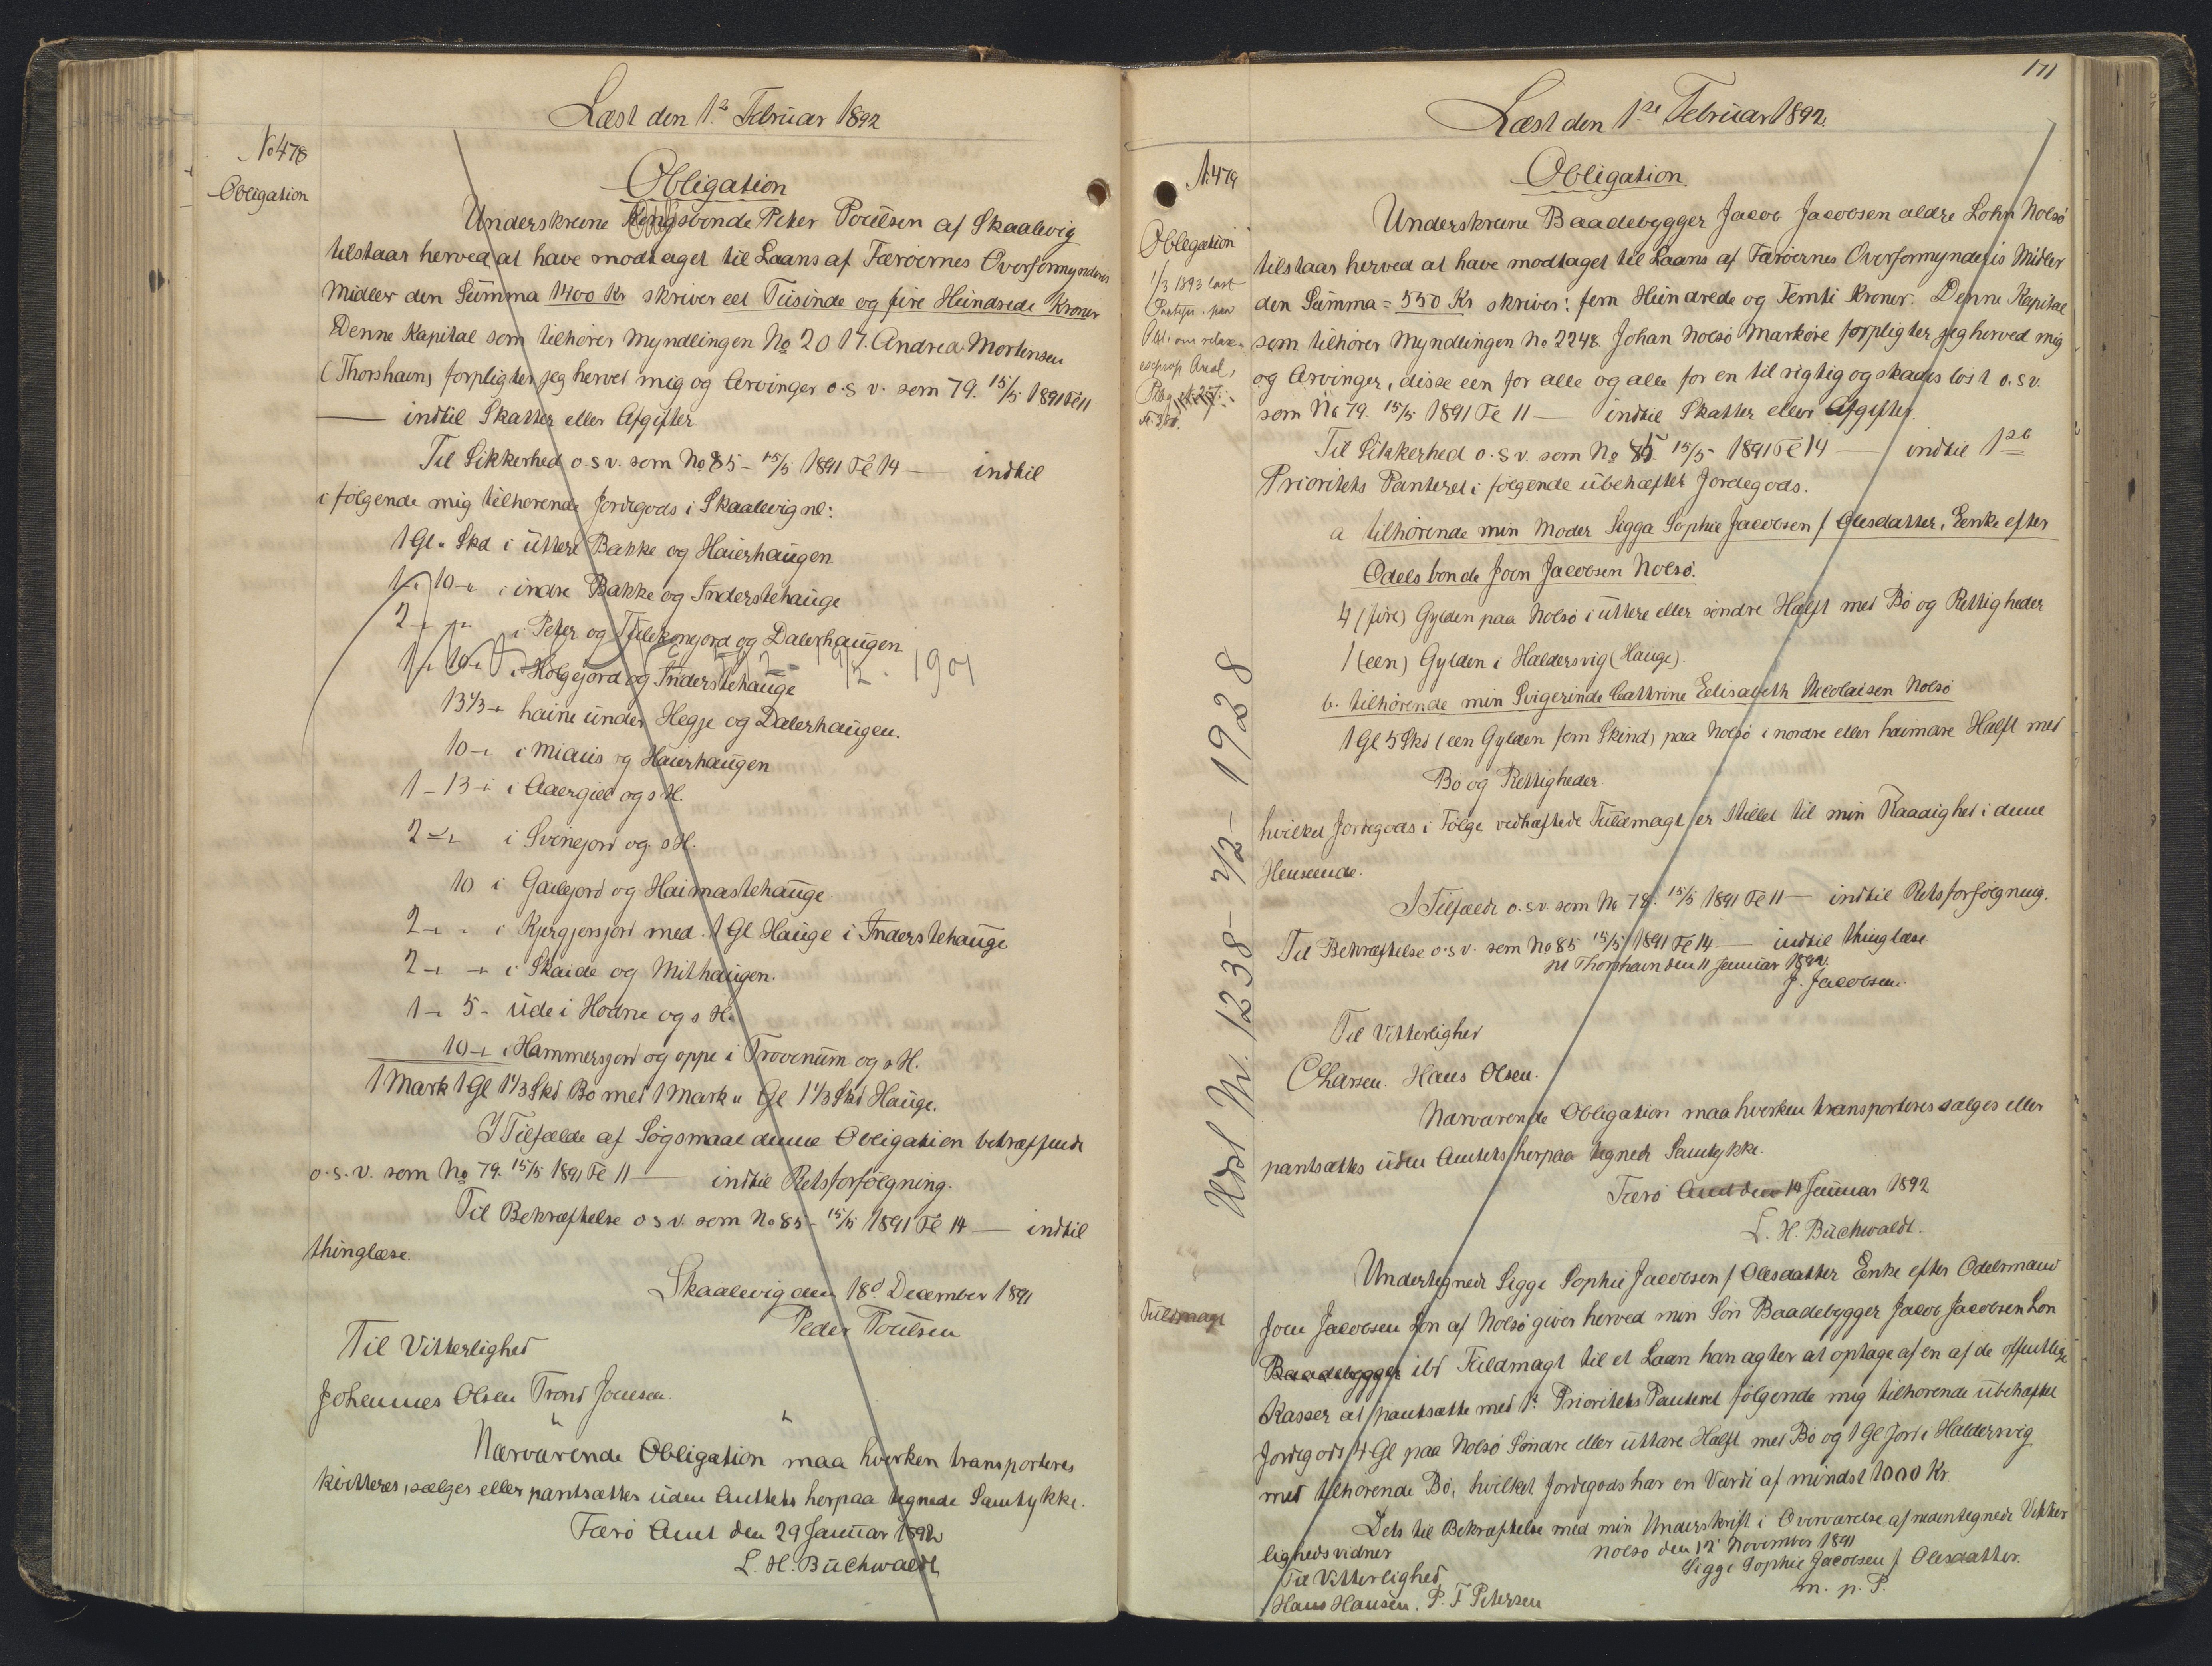 Læst den 1ᵉ Februar 1892
No 478
Obligation
Obligation
Underskrevne Kongsbonde Peter Poulsen af Skaalevig
tilstaar herved at have modtaget til Laans af Færøernes Overformynderies
Midler den Summa 1400 Kr skriver eet Tusinde og fire Hundrede Kroner
Denne Kapital som tilhører Myndlingen No 2017. Andrea Mortensen
(Thorshavn) forpligter jeg hervet mig og Arvinger o.s.v. som 79. 15/5 1891 Fl 11
— indtil Skatter eller Afgifter
Til Sikkerhed o.s.v. som No 85 - 15/5 1891 Fl 14 — indtil
i følgende mig tilhørende Jordegods i Skaalevig nl:
1 Gl " Skd i uttere Bakke og Haierhaugen
1 - 10 - i indre Bakke og Inderstehauge
2 - " - i Peter og Tulekonejord og Dalerhaugen
1 - 10 - i Holgejord og Inderstehauge
19/12 - 1901
13 1/3 - haine under Hegje og Dalerhaugen.
10 - i Miauis og Haierhaugen
1 - 13 - i Aaergiel og s H.
2 - - i Svinejord og s H.
10 i Gailejord og Haimastehauge
2 - - i Kjergjersjord med 1 Gl Hauge i Inderstehauge
2 - - i Skaide og Mithaugen.
1 - 5 - ude i Hodne og s H.
10 - i Hammersjord og oppe i Trovenum og s H.
1 Mark 1 Gl 1 1/3 Skd Bø med 1 Mark " Gl 1 1/3 Skd Hauge.
I Tilfælde af Søgsmaal denne Obligation betræffende
o.s.v. som No 79. 15/5 1891 Fl 11 — indtil Retsforfølgning.
Til Bekræftelse o s v. som No 85 - 15/5 1891 Fl 14 — indtil
thinglæse.
Skaalevig den 18ᵈ December 1891
Peder Poulsen
Til Vitterlighed
Johannes Olsen Trond Joensen.
Nærværende Obligation maa hverken transporteres
kvitteres, sælges eller pantsættes uden Amtets herpaa tegnede Samtykke.
Færø Amt den 29 Januar 1892
L. H. Buchwaldt
171
Læst den 1ste Februar 1892.
N. 479
Obligation
1/3 1893 læst
Obligation
Underskrevne Baadebygger Jacob Jacobsen ældre Lohn Nolsø
tilstaar herved at have modtaget til Laans af Færøernes Overformynderis Midler
den Summa = 550 Kr skriver: fem Hundrede og Femti Kroner. Denne Kapital
som tilhører Myndlingen No 2248 Johan Nolsø Markøre forpligter jeg herved mig
og Arvinger, disse een for alle og alle for en til rigtig og skadesløst o.s.v.
som No 79. 15/5 1891 Fl 11 — indtil Skatter eller Afgifter.
Til Sikkerhed o.s.v. som No 85 15/5 1891 Fl 14 — indtil 1ste
Prioritets Panteret i følgende ubehæftet Jordegods.
a tilhørende min Moder Sigga Sophie Jacobsen f Olesdatter, Enke efter
Odelsbonde Joen Jacobsen Nolsø.
4 (fire) Gylden paa Nolsø i uttere eller søndre Halft med Bø og Rettigheder
1 (een) Gylden i Haldersvig (Hauge).
b. tilhørende min Svigerinde Cathrine Elisabeth Nicolaisen Nolsø
1 Gl 5 Skd (een Gylden fem Skind) paa Nolsø i nordre eller haimare Halft med
Bø og Rettigheder
hvilket Jordegods i Følge vedhæftede Fuldmagt er stillet til min Raadighed i denne
Henseende.
I Tilfælde o.s.v. som No 79. 15/5 1891 Fl 11 — indtil Retsforfølgning.
Til Bekræftelse o.s.v. som No 85 15/5 1891 Fl 14 — indtil thinglæse
pt Thorshavn den 11 Januar 1892.
J. Jacobsen
Til Vitterlighed
C Larsen. Hans Olsen.
Nærværende Obligation maa hverken transporteres sælges eller
pantsættes uden Amtets herpaa tegnede Samtykke.
Færø Amt den 14 Januar 1892
L. H. Buchwaldt.
Udsl Nr. 1238 - 7/2 - 1928
Fuldmagt
Undertegnede Sigge Sophie Jacobsen f Olesdatter Enke efter Odelsmand
Joen Jacobsen Lon af Nolsø giver herved min Søn Baadebygger Jacob Jacobsen Lon
Baadebygger ibd Fuldmagt til et Laan han agter at optage af en af de offentlige
Kasser at pantsætte med 1ᵉ Prioritets Panteret følgende mig tilhørende ubehæftet
Jordegods 4 Gl paa Nolsø Søndre eller uttare Halft med Bø og 1 Gl Jord i Haldersvig
med tilhørende Bø, hvilket Jordegods har en Værdi af mindst 1000 Kr.
Dets til Bekræftelse med min Underskrift i Overværelse af nedentegnede Vitter
lighedsvidner
Nolsø den 12' November 1891
Sigge Sophie Jacobsen f Olesdatter.
m. p. P.
Til Vitterlighed
Hans Hansen. P. F Petersen